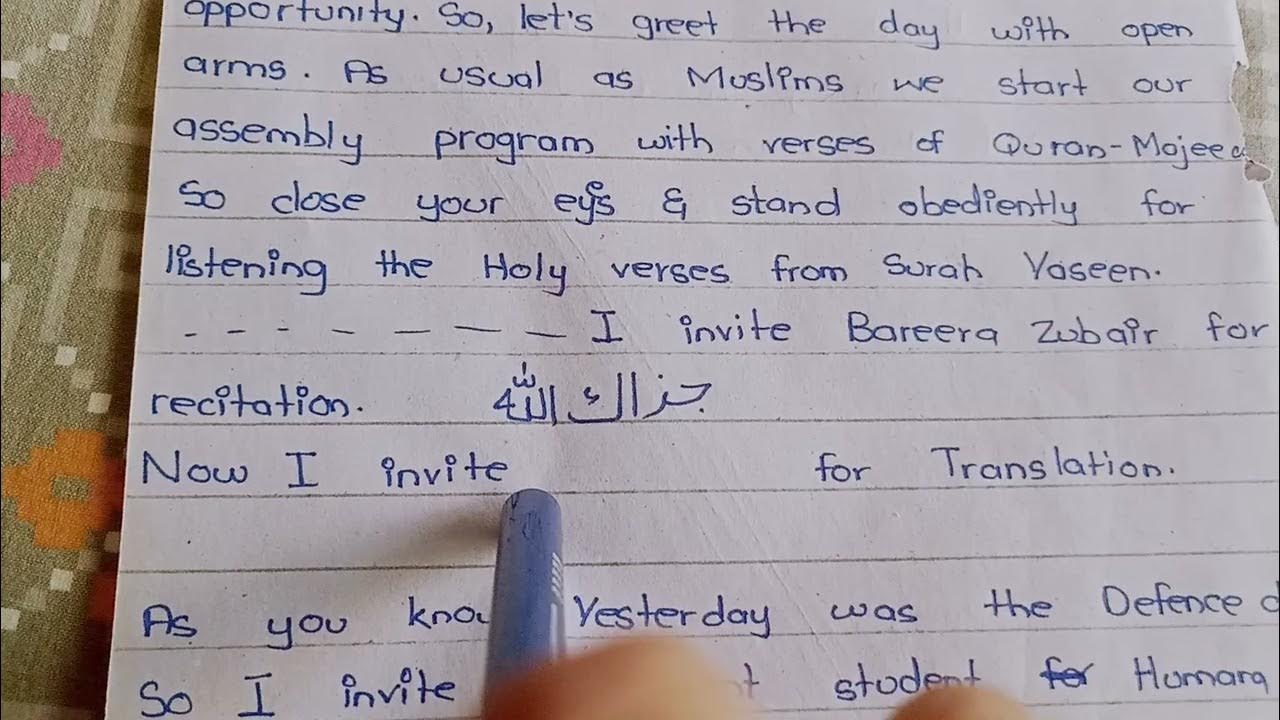 opportunity. So, let's greet the day with open
arms. As usual as Muslims we start our
assembly program with verses of Quran-Majeed
So close your eyes & stand obediently for
listening the Holy verses from Surah Yaseen.
- - - - - - - I invite Bareera Zubair for
recitation. جزاك الله
Now I invite for Translation.
As you Yesterday was the Defence
So I invite student for Humara